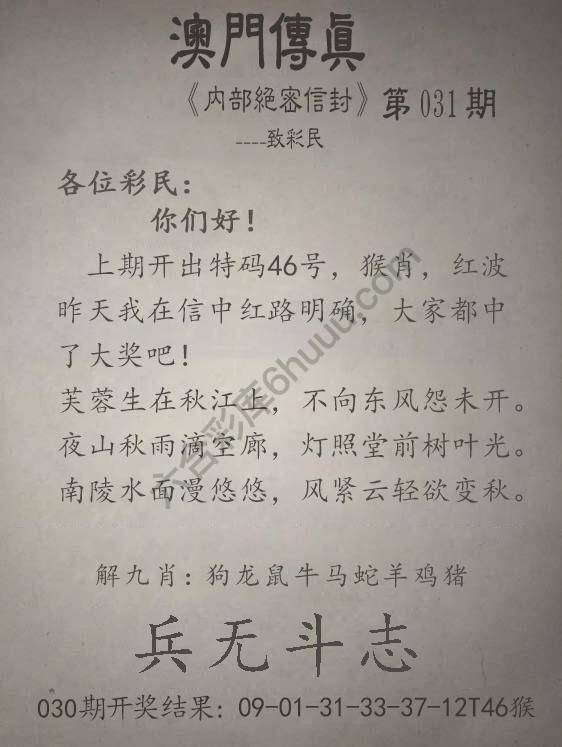 澳門傳眞
《内部絕密信封》第031期
----致彩民
各位彩民：
你们好！
上期开出特码46号，猴肖，红波
昨天我在信中红路明确，大家都中
了大奖吧！
芙蓉生在秋江上，不向东风怨未开。
夜山秋雨滴空廊，灯照堂前树叶光。
南陵水面漫悠悠，风紧云轻欲变秋。
解九肖：狗龙鼠牛马蛇羊鸡猪
兵无斗志
030期开奖结果：09-01-31-33-37-12T46猴
六合彩库6huuu.com